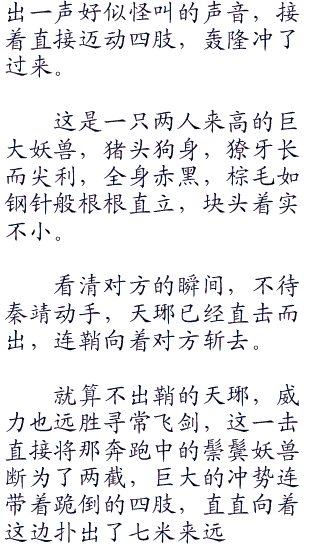 出一声好似怪叫的声音，接
着直接迈动四肢，轰隆冲了
过来。
这是一只两人来高的巨
大妖兽，猪头狗身，獠牙长
而尖利，全身赤黑，棕毛如
钢针般根根直立，块头着实
不小。
看清对方的瞬间，不待
秦靖动手，天琊已经直击而
出，连鞘向着对方斩去。
就算不出鞘的天琊，威
力也远胜寻常飞剑，这一击
直接将那奔跑中的鬃鬓妖兽
断为了两截，巨大的冲势连
带着跪倒的四肢，直直向着
这边扑出了七米来远